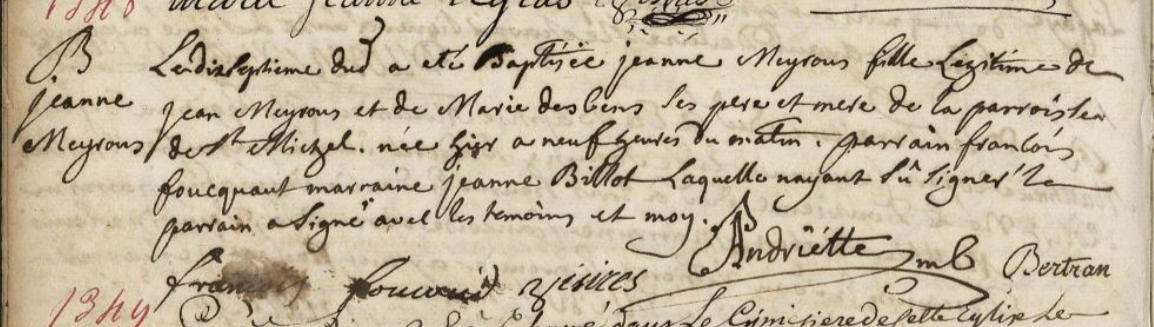 1348
B
jeanne
Meyrous
Ledixseptieme dud a eté Baptisée jeanne Meyrous fille Legitime de
jean Meyrous et de Marie desbens ses pere et mere de la parroisse
de St Michel. née hier a neuf heures du matin. parrain francois
foucquaut marraine jeanne Billot Laquelle nayant sû signer le
parrain a signé avec les temoins et moy.
Andriëtte Bertran
francois
1349
dans le Cimetiere de cette Eglise le